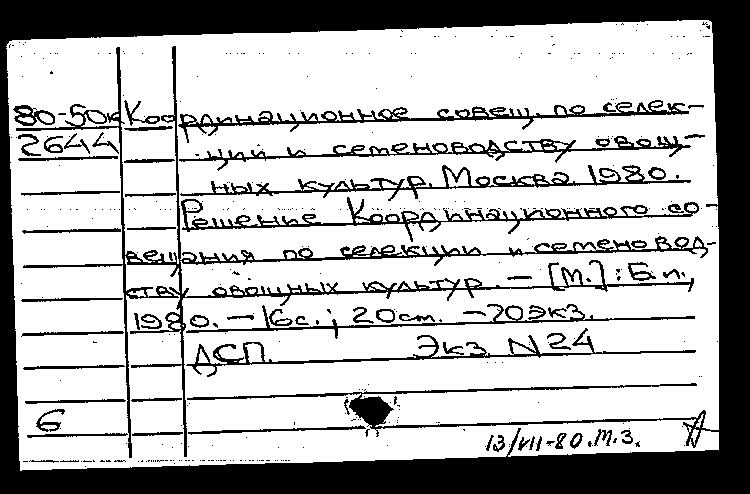 80-50к Координационное совещ. по селек-
2644 ции и семеноводству овощ-
ных культур. Москва. 1980.
Решение Координационного со-
вещания по селекции и семеновод-
ству овощных культур. — [М.] : Б.и.,
1980. — 16с.; 20см. — 70экз.
ДСП. Экз. N 24
6
13/VII-80. т.з.